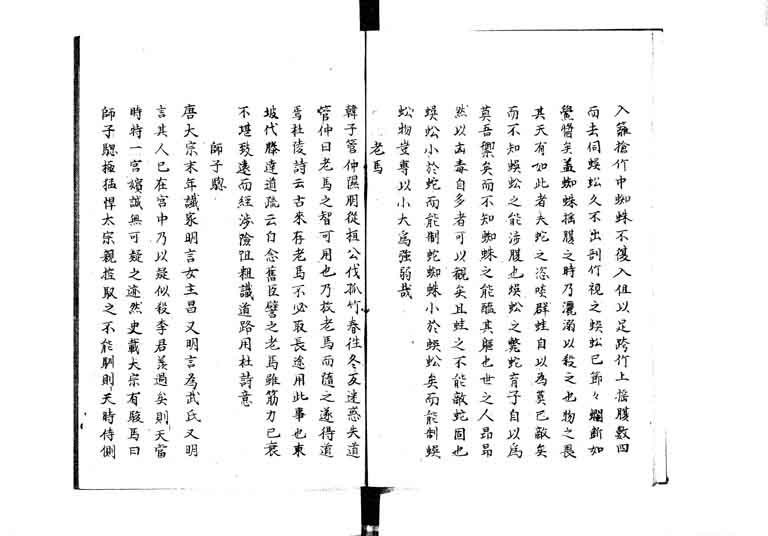 入籬搶竹中蜘蛛不復入但以足跨竹上搖腹數四
而去伺蜈蚣久不出剖竹視之蜈蚣已節々爛斷如
鱟醬矣蓋蜘蛛搖腹之時乃灑溺以殺之也物之畏
其天有如此者夫蛇之恣啖群蛙自以為莫已敵矣
而不知蜈蚣之能涉腹也蜈蚣之斃蛇育子自以為
莫吾禦矣而不知蜘蛛之能醢其軀也世之人昂昂
然以凶毒自多者可以觀矣且蛙之不能敵蛇固也
蜈蚣小於蛇而能制蛇蜘蛛小於蜈蚣矣而能制蜈
蚣物豈專以小大為強弱哉
老馬
韓子管仲隰朋從桓公伐孤竹春往冬反迷惑失道
管仲曰老馬之智可用也乃放老馬而隨之遂得道
焉杜陵詩云古來存老馬不必取長途用此事也東
坡代滕達道疏云自念舊臣譬之老馬雖筋力已衰
不堪致遠而經涉險阻粗識道路用杜詩意
師子驄
唐大宗末年讖家明言女主昌又明言為武氏又明
言其人已在宮中乃以疑似殺李君羨過矣則天當
時特一宮嬪誠無可疑之迹然史載大宗有駿馬曰
師子驄極猛悍太宗親控馭之不能馴則天時侍側